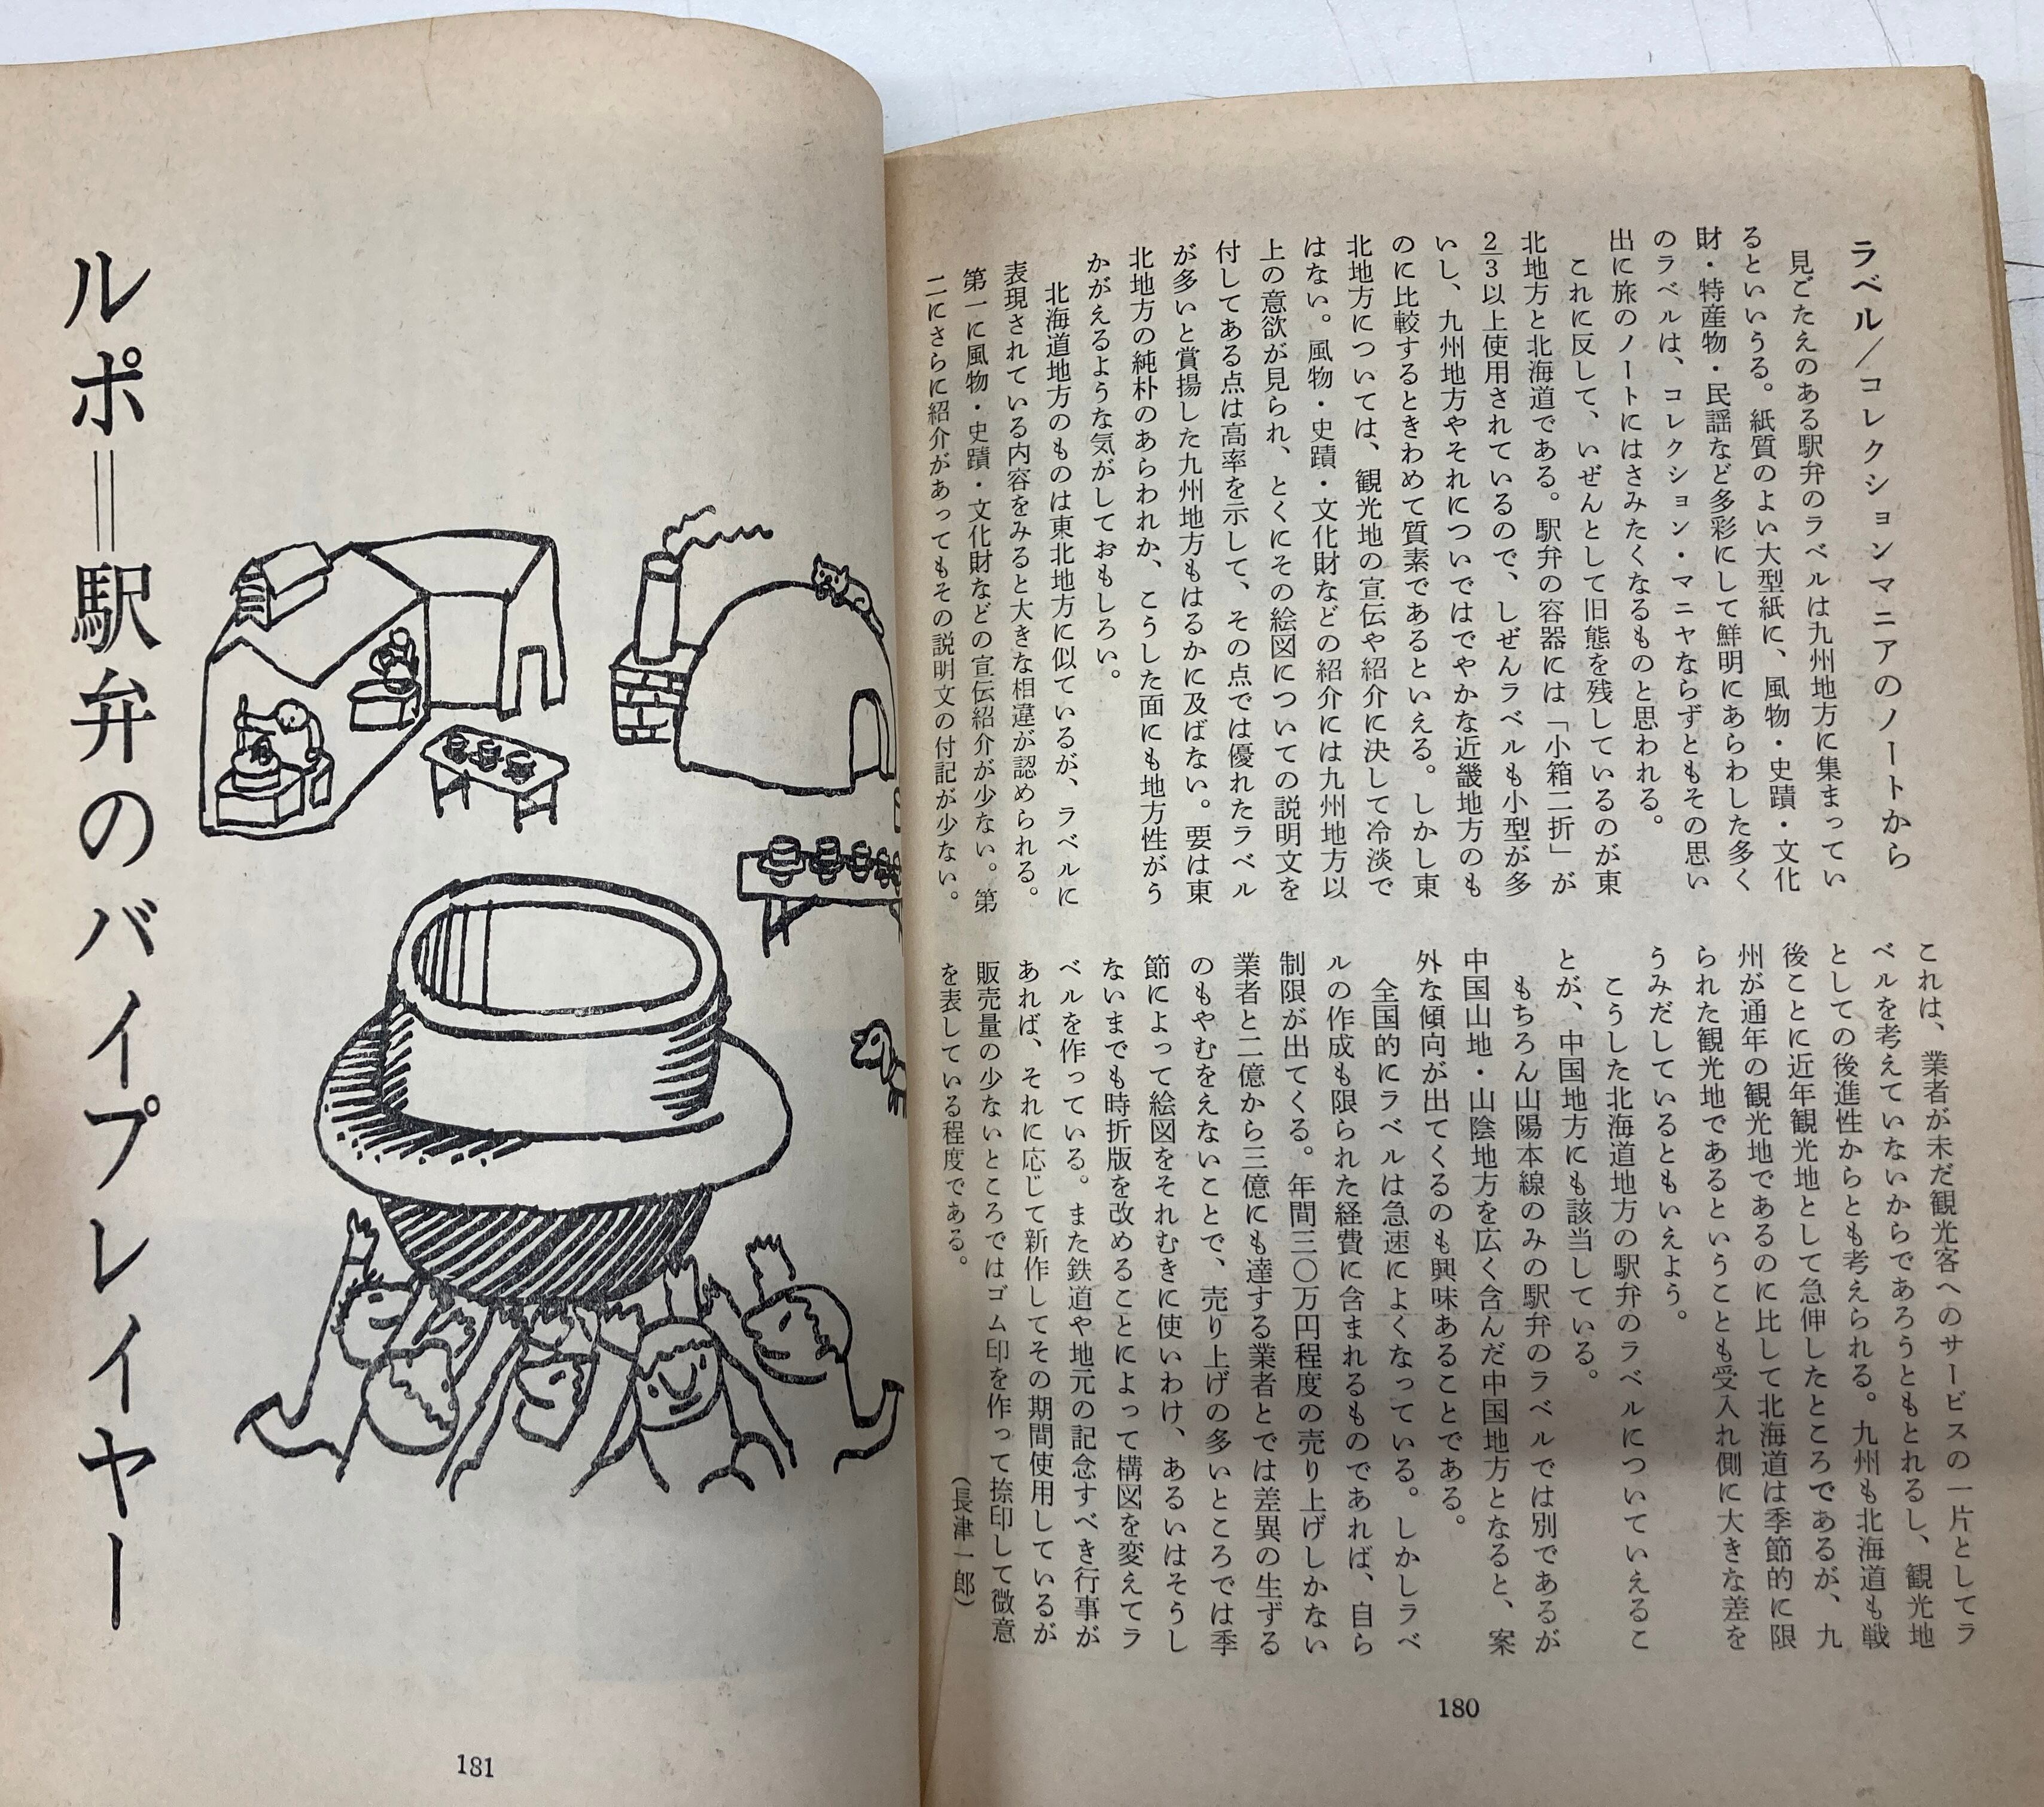 ラベル／コレクションマニアのノートから
見ごたえのある駅弁のラベルは九州地方に集まってい
るといいうる。紙質のよい大型紙に、風物・史蹟・文化
財・特産物・民謡など多彩にして鮮明にあらわした多く
のラベルは、コレクション・マニヤならずともその思い
出に旅のノートにはさみたくなるものと思われる。
これに反して、いぜんとして旧態を残しているのが東
北地方と北海道である。駅弁の容器には「小箱二折」が
2/3以上使用されているので、しぜんラベルも小型が多
いし、九州地方やそれについではでやかな近畿地方のも
のに比較するときわめて質素であるといえる。しかし東
北地方については、観光地の宣伝や紹介に決して冷淡で
はない。風物・史蹟・文化財などの紹介には九州地方以
上の意欲が見られ、とくにその絵図についての説明文を
付してある点は高率を示して、その点では優れたラベル
が多いと賞揚した九州地方もはるかに及ばない。要は東
北地方の純朴のあらわれか、こうした面にも地方性がう
かがえるような気がしておもしろい。
北海道地方のものは東北地方に似ているが、ラベルに
表現されている内容をみると大きな相違が認められる。
第一に風物・史蹟・文化財などの宣伝紹介が少ない。第
二にさらに紹介があってもその説明文の付記が少ない。
これは、業者が未だ観光客へのサービスの一片としてラ
ベルを考えていないからであろうともとれるし、観光地
としての後進性からとも考えられる。九州も北海道も戦
後ことに近年観光地として急伸したところであるが、九
州が通年の観光地であるのに比して北海道は季節的に限
られた観光地であるということも受入れ側に大きな差を
うみだしているともいえよう。
こうした北海道地方の駅弁のラベルについていえるこ
とが、中国地方にも該当している。
もちろん山陽本線のみの駅弁のラベルでは別であるが
中国山地・山陰地方を広く含んだ中国地方となると、案
外な傾向が出てくるのも興味あることである。
全国的にラベルは急速によくなっている。しかしラベ
ルの作成も限られた経費に含まれるものであれば、自ら
制限が出てくる。年間三〇万円程度の売り上げしかない
業者と二億から三億にも達する業者とでは差異の生ずる
のもやむをえないことで、売り上げの多いところでは季
節によって絵図をそれむきに使いわけ、あるいはそうし
ないまでも時折版を改めることによって構図を変えてラ
ベルを作っている。また鉄道や地元の記念すべき行事が
あれば、それに応じて新作してその期間使用しているが
販売量の少ないところではゴム印を作って捺印して微意
を表している程度である。
（長津一郎）
180
ルポ＝駅弁のバイプレイヤー
181